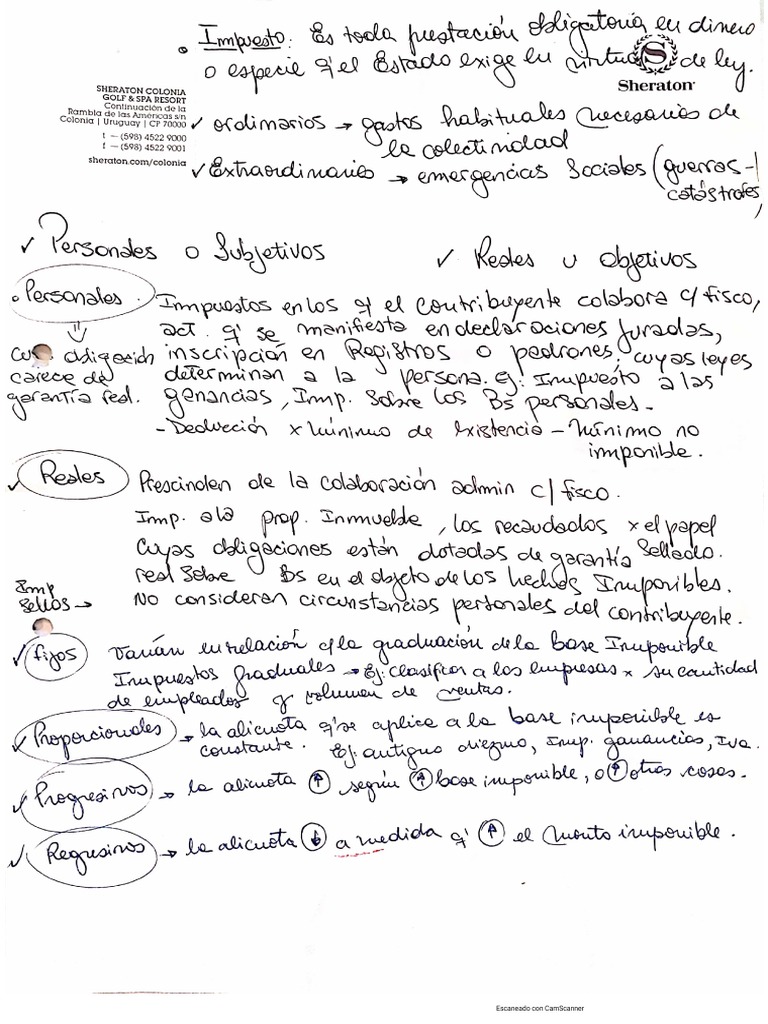 • Impuesto: Es toda prestación obligatoria en dinero
o especie q' el Estado exige en virtud de ley.
Sheraton
SHERATON COLONIA
GOLF & SPA RESORT
Continuación de la
Rambla de las Américas s/n
Colonia | Uruguay | CP 70000
t — (598) 4522 9000
f — (598) 4522 9001
sheraton.com/colonia
✓ ordinarios → gastos habituales necesarios de
la colectividad
✓ Extraordinarios → emergencias sociales (guerras -
catástrofes)
✓ Personales o Subjetivos
✓ Reales u objetivos
• Personales
⇓
cuya obligación
carece de
garantía real.
Impuestos en los q' el contribuyente colabora c/ fisco,
act. q' se manifiesta en declaraciones juradas,
inscripción en Registros o padrones, cuyas leyes
determinan a la persona. ej: Impuesto a las
genancias, Imp. Sobre los Bs personales -
- Deducción x mínimo de existencia - Mínimo no
imponible.
✓ Reales
Prescinden de la colaboración admin c/ fisco.
Imp. a la prop. Inmueble, los recaudados x el papel
sellado.
cuyas obligaciones están dotadas de garantía
real sobre Bs en el objeto de los hechos Imponibles.
Imp
Sellos →
No consideran circunstancias personales del contribuyente.
✓ fijos
Varían en relación c/ la graduación de la base Imponible
Impuestos graduales → Ej: clasificar a las empresas x su cantidad
de empleados y volumen de ventas.
✓ Proporcionales → la alicuota q' se aplica a la base imponible es
constante. Ej: antiguo diezmo, Imp. ganancias, Iva.
✓ Progresivos → la alicuota ↑ según ↑ base imponible, o ↑ otras cosas.
✓ Regresivos → la alicuota ↓ a medida q' ↑ el monto imponible.
Escaneado con CamScanner